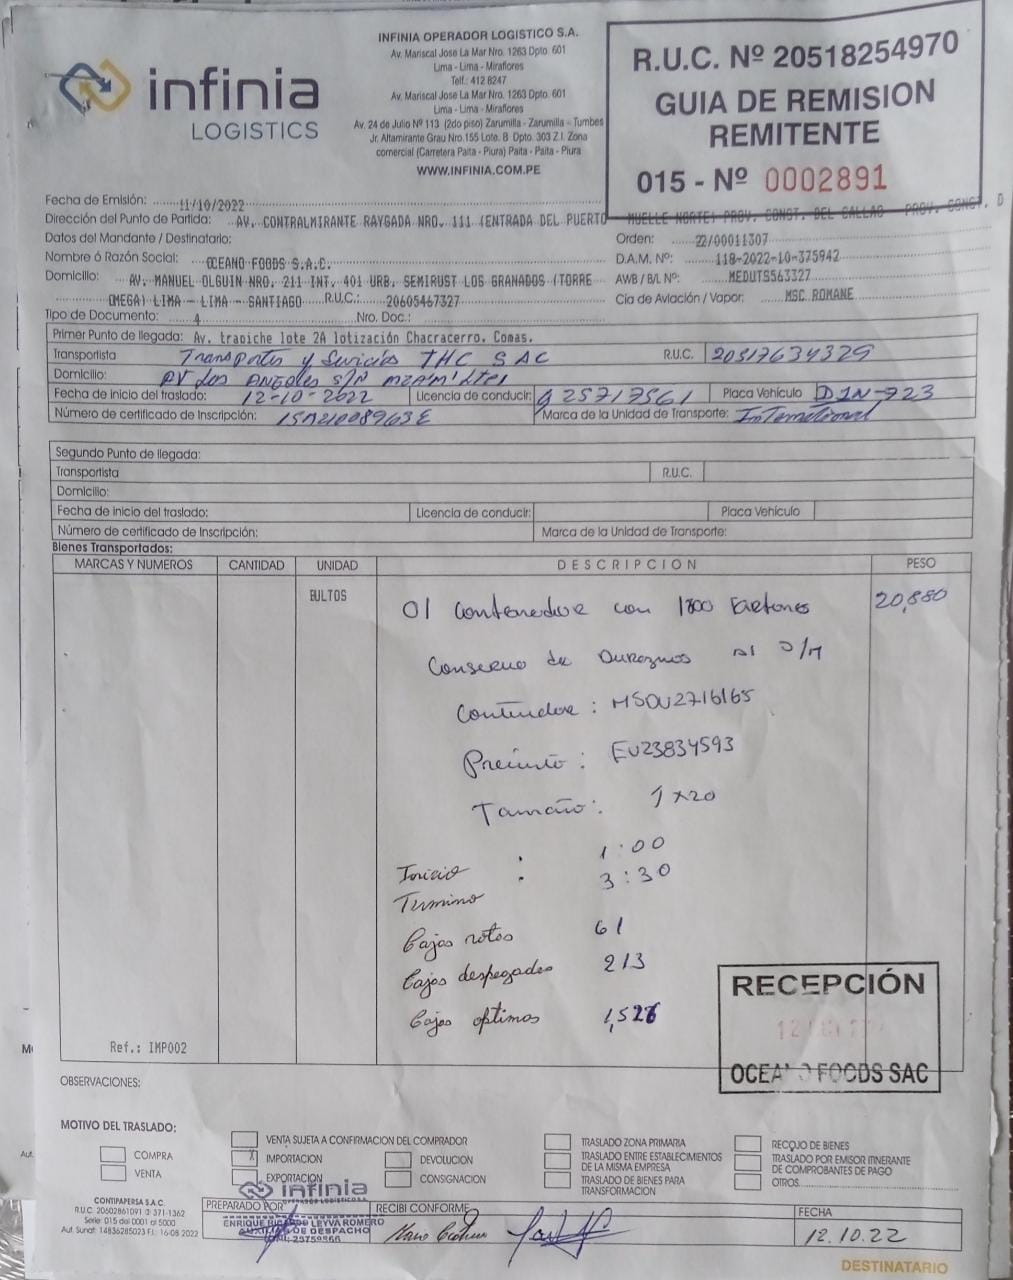 infinia
LOGISTICS
INFINIA OPERADOR LOGISTICO S.A.
Av. Mariscal Jose La Mar Nro. 1263 Dpto. 601
Lima - Lima - Miraflores
Telf.: 412 8247
Av. Mariscal Jose La Mar Nro. 1263 Dpto. 601
Lima - Lima - Miraflores
Av. 24 de Julio Nº 113 (2do piso) Zarumilla - Zarumilla - Tumbes
Jr. Altamirante Grau Nro. 155 Lote. B Dpto. 303 Z.I. Zona
comercial (Carretera Paita - Piura) Paita - Paita - Piura
WWW.INFINIA.COM.PE
R.U.C. Nº 20518254970
GUIA DE REMISION
REMITENTE
015 - Nº 0002891
Fecha de Emisión: 11/10/2022
Dirección del Punto de Partida: AV. CONTRALMIRANTE RAYGADA NRO. 111 (ENTRADA DEL PUERTO MUELLE NORTE) PROV. CONST. DEL CALLAO PROV. CONST. D
Datos del Mandante / Destinatario:
Orden: 22/00011307
Nombre ó Razón Social: OCEANO FOODS S.A.C.
D.A.M. Nº: 118-2022-10-375942
Domicilio: AV. MANUEL OLGUIN NRO. 211 INT. 401 URB. SEMIRUST LOS GRANADOS (TORRE
AWB / B/L Nº: MEDUTS563327
OMEGA) LIMA - LIMA - SANTIAGO R.U.C.: 20605467327
Cía de Aviación / Vapor: MSC ROMANE
Tipo de Documento: 4 Nro. Doc.:
Primer Punto de llegada: Av. trapiche lote 2A lotización Chacracerro. Comas.
Transportista Transportes y Servicios THC SAC R.U.C. 20517634329
Domicilio: AV Los ANGELES S/N
Fecha de inicio del traslado: 12-10-2022 Licencia de conducir: Q25717561 Placa Vehículo D1N-723
Número de certificado de Inscripción: Marca de la Unidad de Transporte: International
Segundo Punto de llegada:
Transportista R.U.C.
Domicilio:
Fecha de inicio del traslado: Licencia de conducir: Placa Vehículo
Número de certificado de Inscripción: Marca de la Unidad de Transporte:
Bienes Transportados:
MARCAS Y NUMEROS CANTIDAD UNIDAD DESCRIPCION PESO
BULTOS 01 Contenedor con 1800 Cartones 20,880
Conserva de Duraznos
Contenedor : MSDU2716165
Precinto : EU23834593
Tamaño : 1x20
Inicio : 1:00
Termino : 3:30
Cajas rotas 61
Cajas despegadas 213
Cajas optimas 1,526
Ref.: IMP002
RECEPCIÓN
OCEANO FOODS SAC
OBSERVACIONES:
MOTIVO DEL TRASLADO:
COMPRA
VENTA
VENTA SUJETA A CONFIRMACION DEL COMPRADOR
X IMPORTACION
EXPORTACION
DEVOLUCION
CONSIGNACION
TRASLADO ZONA PRIMARIA
TRASLADO ENTRE ESTABLECIMIENTOS
DE LA MISMA EMPRESA
TRASLADO DE BIENES PARA
TRANSFORMACION
RECOJO DE BIENES
TRASLADO POR EMISOR ITINERANTE
DE COMPROBANTES DE PAGO
OTROS
CONTIPAPERSA S.A.C.
R.U.C. 20602861091 371-1362
Serie: 015 del 0001 al 5000
Aut. Sunat: 14836285023 F.I.: 16-08-2022
PREPARADO POR
infinia
ENRIQUE RICARDO LEYVA ROMERO
AUXILIAR DE DESPACHO
RECIBI CONFORME
FECHA
12.10.22
DESTINATARIO